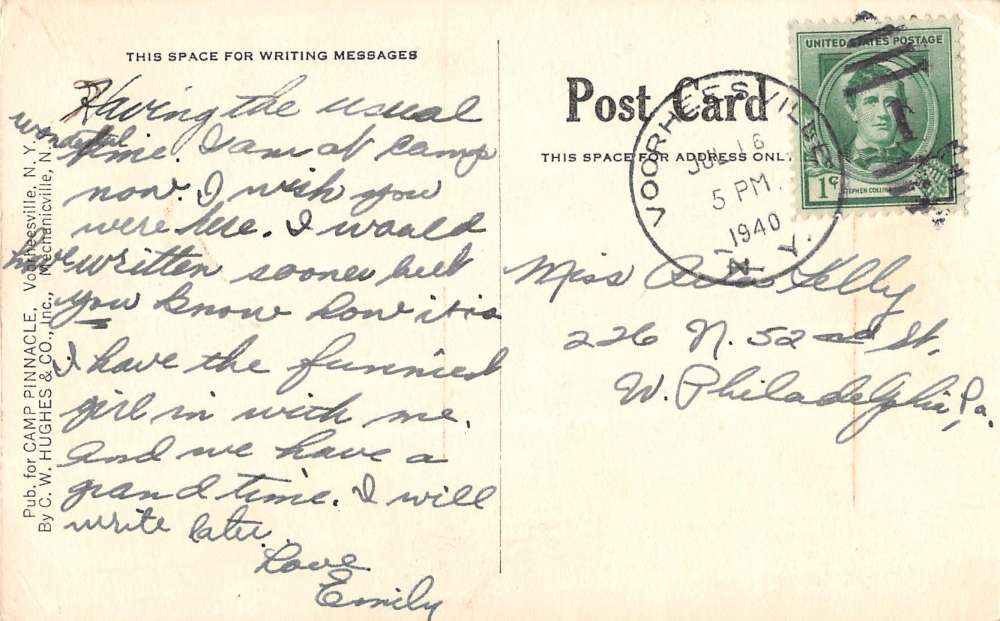 THIS SPACE FOR WRITING MESSAGES
Having the usual
wonderful
time. I am at camp
now. I wish you
were here. I would
have written sooner but
you know how it is
I have the funniest
girl in with me.
and we have a
grand time. I will
write later.
Love
Emily
Pub. for CAMP PINNACLE, Voorheesville, N. Y.
By C. W. HUGHES & CO., Inc., Mechanicville, N.
Post Card
THIS SPACE FOR ADDRESS ONLY
VOORHEESVILLE
JUL 16
5 PM.
1940
N. Y.
UNITED STATES POSTAGE
1¢
STEPHEN COLLINS
Miss Rita Kelly
226 N. 52nd St.
W. Philadelphia, Pa.